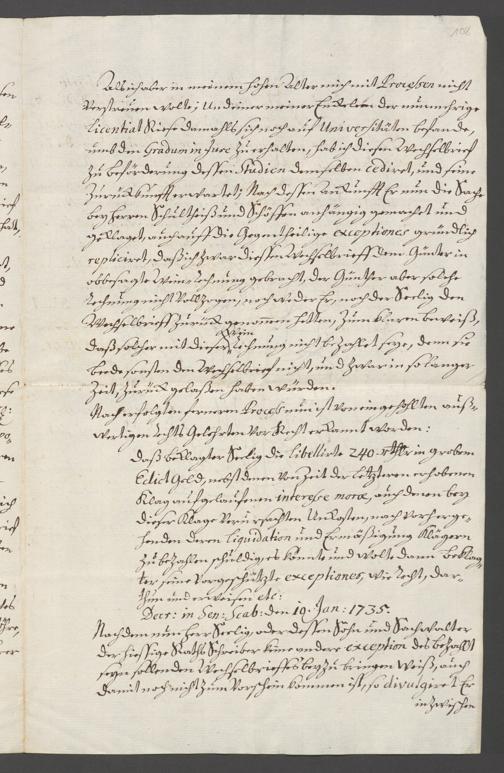 108
Als ich aber in meinem hohen Alter mich mit Processen nicht
Verstreuen wolte, Und einer meiner Enckeln der nunmehrige
Licentiat Riese damahls sich noch auf Universitäten befande,
umb den Gradum in Jure zu erhalten, hab ich diesen Wechselbrieff
zu beförderung dessen Studien demselben cediret, und seine
Zurückkunfft erwartet; Nach dessen ankunfft Er nun die Sache
bey Herren Schultheiß und Schöffen anhängig gemacht und
geklaget, auch auff die Gegentheilige exceptiones gründlich
repliciret, daß ich zwar diesen Wechselbrieff dem Günter in
obbesagte Weinrechnung gebracht, der Günther aber solche
Rechnung nicht Vollzogen, noch weder Er, noch der Seelig den
Wechselbrieff zurück genommen hetten, zum klaren beweiß,
daß solcher mit dieser Wein Rechnung nicht bezahlet seye, denn sie
beede sonsten den Wechselbrieff nicht, und zwar in so langer
Zeit, zurück gelaßen haben würden.
Nach erfolgten ferneren Process nun ist von eingehohlten auß-
wertigen Rechts Gelehrten vor Recht erkannt worden:
Daß beklagter Seelig die libellirte 240. rthlr in grobem
Edict Geld, nebst denen von Zeit der letzteren erhobenen
Klag aufgelauffnen interesse morae, auch denen bey
dieser Klage verursachten Unkosten, nach vorherge-
henden deren liquidation und Ermäßigung Klägern
zu bezahlen schuldig, es könnte und wolte dann beklag-
ter seine vorgeschützte exceptiones, wie Recht, dar-
thun und erweisen etc:
Decr: in Sen: Scab: den 19. Jan: 1735.
Nachdem nun Herr Seelig, oder dessen Sohn und Sachwalter
der hiesige Raths Schreiber keine andere exception des bezahlt
seyn sollenden Wechselbrieffs beyzubringen weiß, auch
damit noch nicht zum Vorschein kommen ist, so divulgiret Er
inzwischen